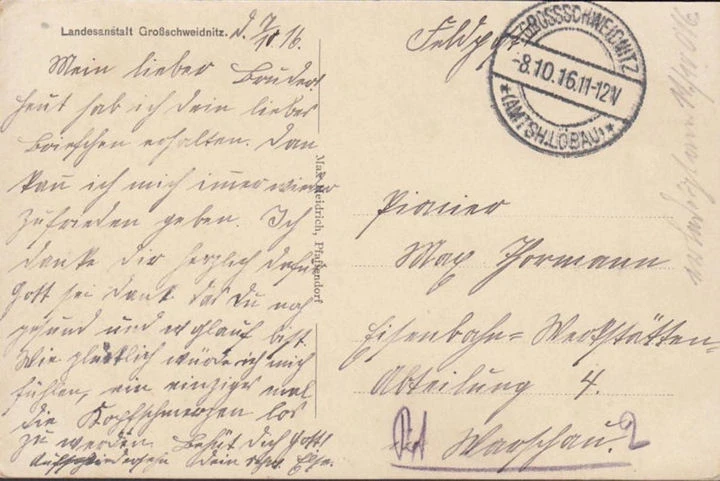 Landesanstalt Großschweidnitz. d. 7/10 16.
Mein lieber Bruder,
heut hab ich dein liebes
Briefchen erhalten. Dan
kan ich mich imer wieder
zufrieden geben. Ich
danke dir herzlich dafür
Gott sei Dank das Du noch
gesund und wohlauf bist
Wie glücklich würde ich mich
fühlen, ein einziges mal
die Kopfschmerzen los
zu werden. Behüt dich Gott!
Auf wiedersehn dein
Max Heidrich, Pfaffendorf
Feldpost
GROSSSCHWEIDNITZ
-8.10.16.11-12V
*(AMTSH.LÖBAU)*
Pionier
Max Hormann
Eisenbahn=Werkstätten=
Abteilung 4.
Warschau. 2